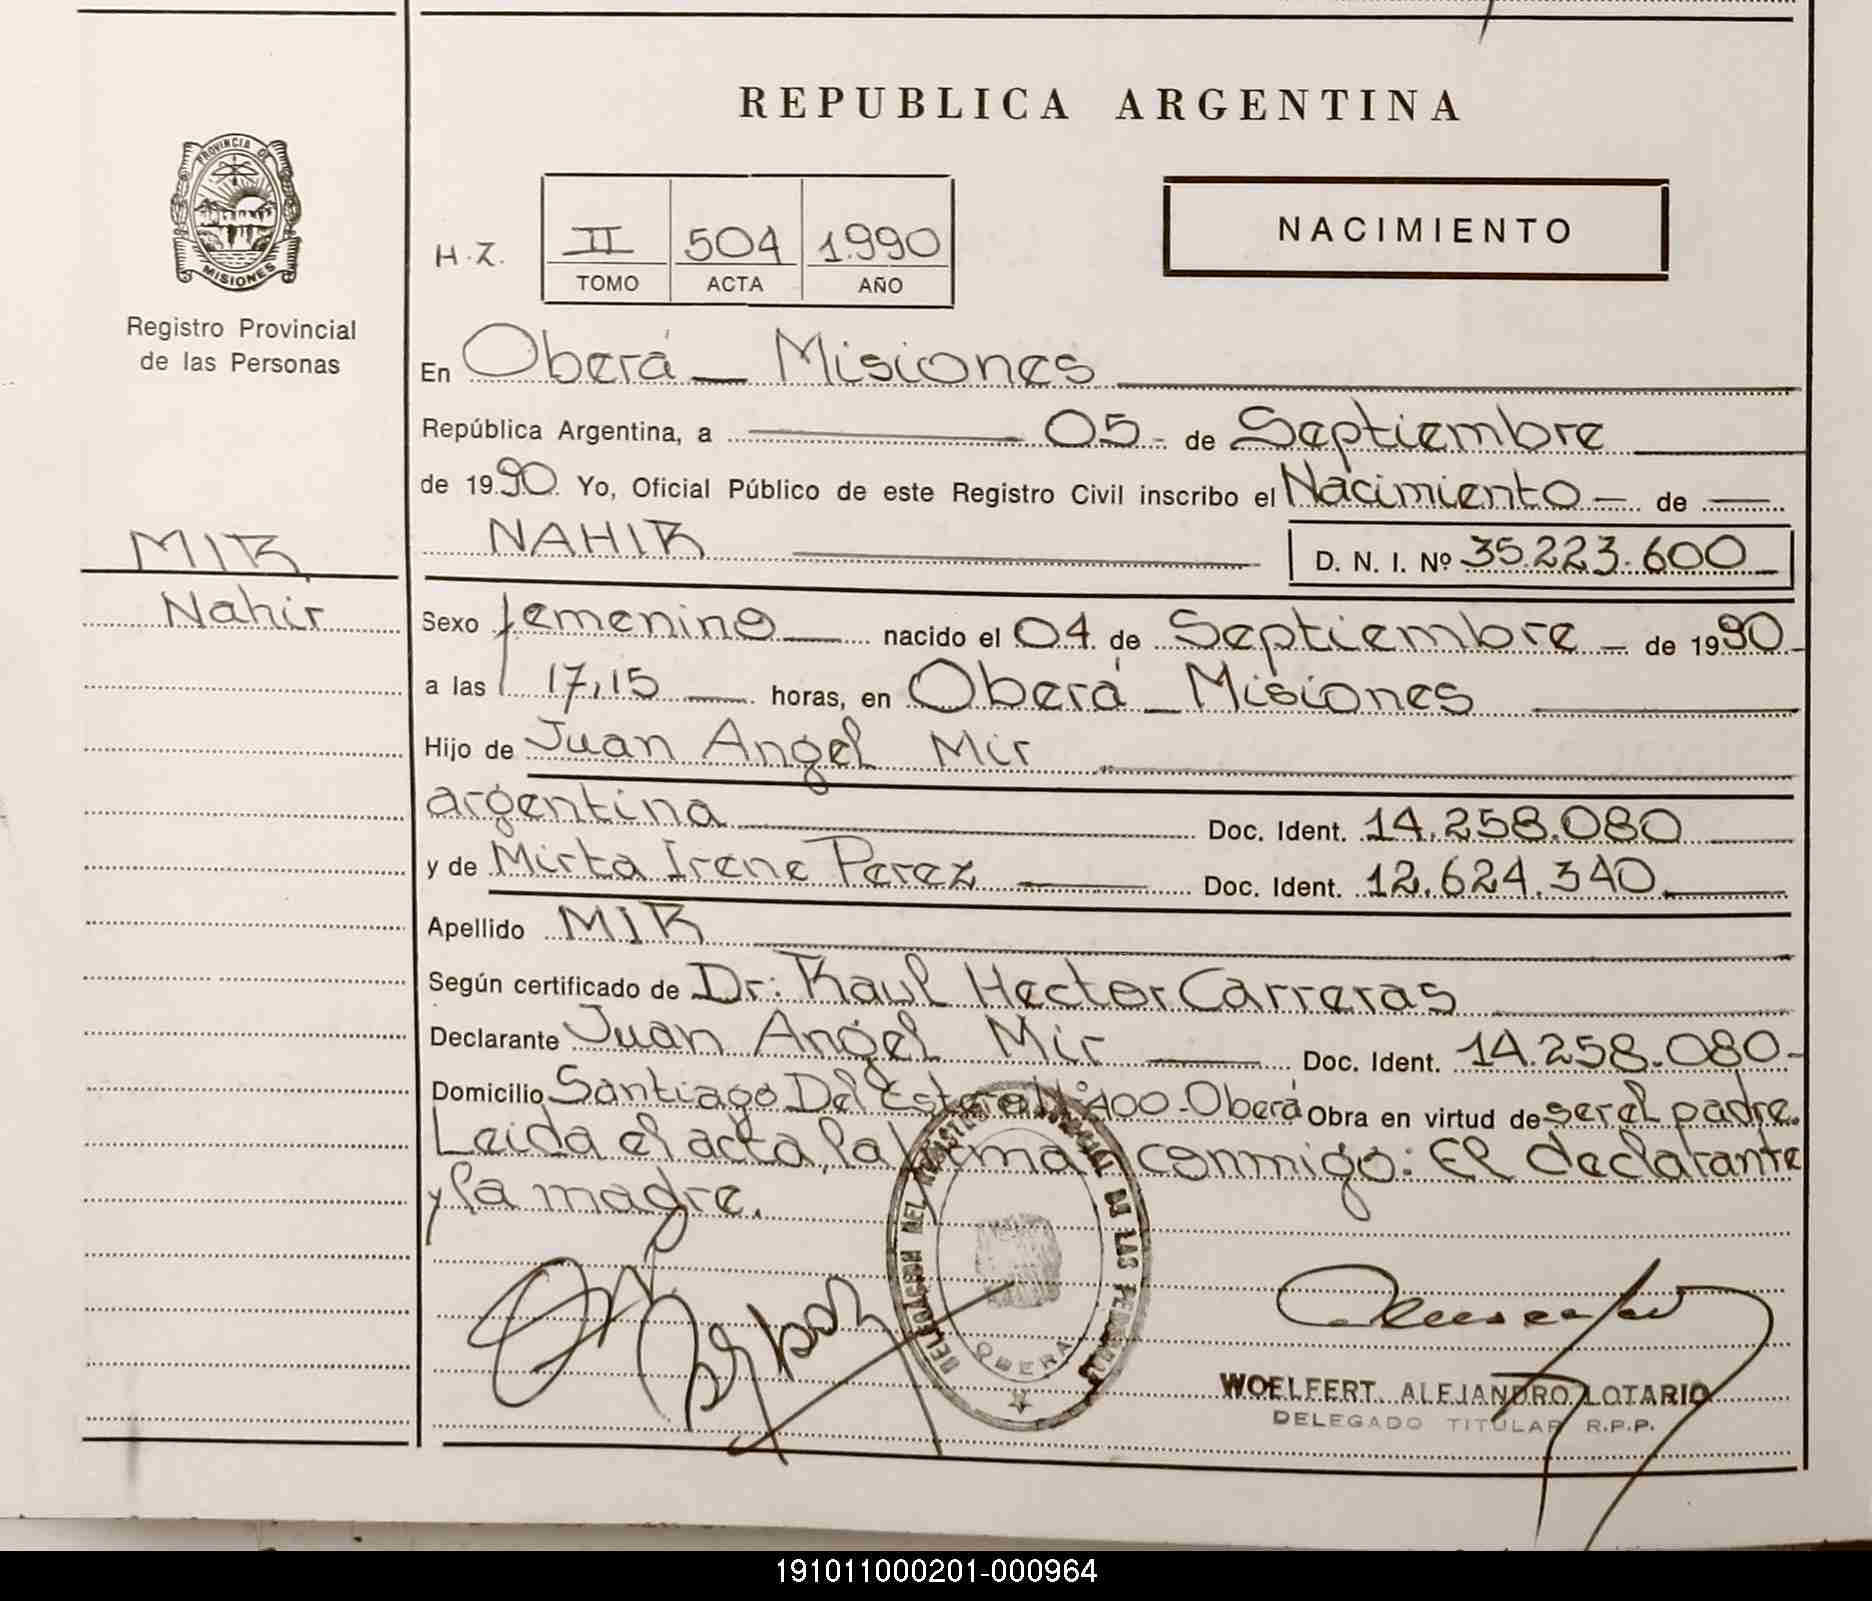 REPUBLICA ARGENTINA
PROVINCIA DE
MISIONES
Registro Provincial
de las Personas
H.Z.
II 504 1.990
TOMO ACTA AÑO
NACIMIENTO
En Oberá _ Misiones
República Argentina, a 05 - de Septiembre
de 1990. Yo, Oficial Público de este Registro Civil inscribo el Nacimiento - de
MIR
Nahir
NAHIR
D. N. I. Nº 35.223.600
Sexo femenino nacido el 04 de Septiembre - de 1990.-
a las 17,15 horas, en Oberá _ Misiones
Hijo de Juan Angel Mir
argentina Doc. Ident. 14.258.080
y de Mirta Irene Perez Doc. Ident. 12.624.340.
Apellido MIR
Según certificado de Dr: Raul Hector Carreras
Declarante Juan Angel Mir Doc. Ident. 14.258.080-
Domicilio Santiago Del Estero Nº 400-Oberá Obra en virtud de ser el padre.
Leida el acta, la firman conmigo: El declarante
y la madre.
DE LAS PERSONAS
OBERA
WOELFERT. ALEJANDRO LOTARIO
DELEGADO TITULAR R.P.P.
191011000201-000964